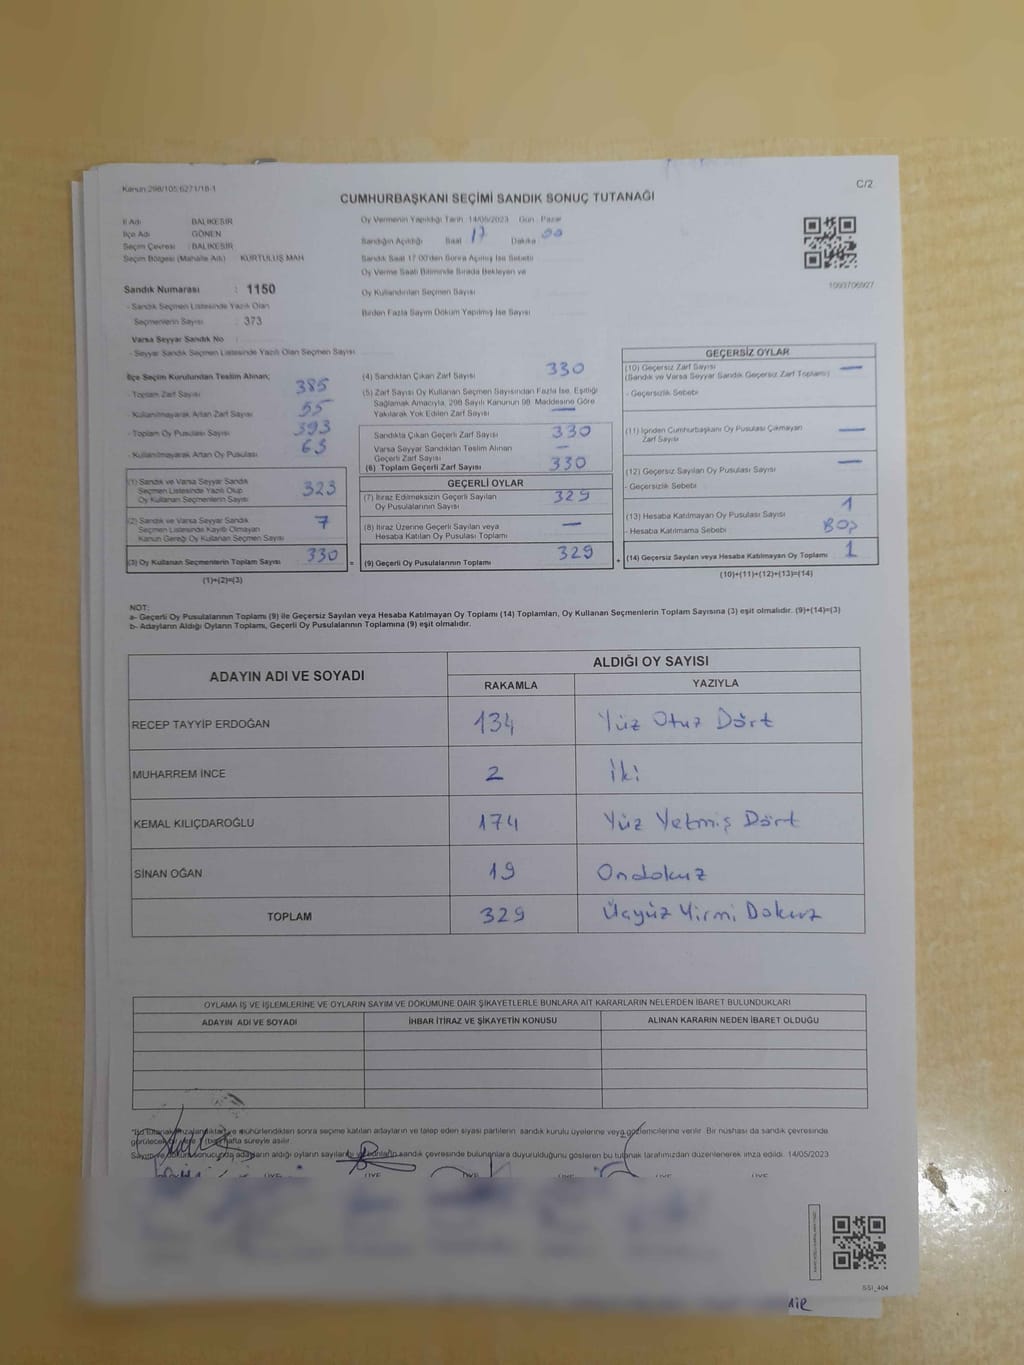 Kanun:298/105,6271/18-1
C/2
CUMHURBAŞKANI SEÇİMİ SANDIK SONUÇ TUTANAĞI
İl Adı BALIKESİR
İlçe Adı GÖNEN
Seçim Çevresi : BALIKESİR
Seçim Bölgesi (Mahalle Adı) KURTULUŞ MAH
Sandık Numarası : 1150
- Sandık Seçmen Listesinde Yazılı Olan
Seçmenlerin Sayısı : 373
Varsa Seyyar Sandık No
- Seyyar Sandık Seçmen Listesinde Yazılı Olan Seçmen Sayısı
Oy Vermenin Yapıldığı Tarih: 14/05/2023 Gün: Pazar
Sandığın Açıldığı Saat 17 Dakika 00
Sandık Saat 17.00'den Sonra Açılmış İse Sebebi
Oy Verme Saati Bitiminde Sırada Bekleyen ve
Oy Kullandırılan Seçmen Sayısı
Birden Fazla Sayım Döküm Yapılmış İse Sayısı
1093706927
İlçe Seçim Kurulundan Teslim Alınan;
- Toplam Zarf Sayısı 385
- Kullanılmayarak Artan Zarf Sayısı 55
- Toplam Oy Pusulası Sayısı 393
- Kullanılmayarak Artan Oy Pusulası 63
(1) Sandık ve Varsa Seyyar Sandık
Seçmen Listesinde Yazılı Olup
Oy Kullanan Seçmenlerin Sayısı 323
(2) Sandık ve Varsa Seyyar Sandık
Seçmen Listesinde Kayıtlı Olmayan
Kanun Gereği Oy Kullanan Seçmen Sayısı 7
(3) Oy Kullanan Seçmenlerin Toplam Sayısı 330 =
(1)+(2)=(3)
(4) Sandıktan Çıkan Zarf Sayısı 330
(5) Zarf Sayısı Oy Kullanan Seçmen Sayısından Fazla İse, Eşitliği
Sağlamak Amacıyla, 298 Sayılı Kanunun 98. Maddesine Göre
Yakılarak Yok Edilen Zarf Sayısı —
Sandıkta Çıkan Geçerli Zarf Sayısı 330
Varsa Seyyar Sandıktan Teslim Alınan
Geçerli Zarf Sayısı —
(6) Toplam Geçerli Zarf Sayısı 330
GEÇERLİ OYLAR
(7) İtiraz Edilmeksizin Geçerli Sayılan
Oy Pusulalarının Sayısı 329
(8) İtiraz Üzerine Geçerli Sayılan veya
Hesaba Katılan Oy Pusulası Toplamı —
(9) Geçerli Oy Pusulalarının Toplamı 329 +
GEÇERSİZ OYLAR
(10) Geçersiz Zarf Sayısı —
(Sandık ve Varsa Seyyar Sandık Geçersiz Zarf Toplamı)
- Geçersizlik Sebebi
(11) İçinden Cumhurbaşkanı Oy Pusulası Çıkmayan
Zarf Sayısı —
(12) Geçersiz Sayılan Oy Pusulası Sayısı —
- Geçersizlik Sebebi
(13) Hesaba Katılmayan Oy Pusulası Sayısı 1
- Hesaba Katılmama Sebebi BOŞ
(14) Geçersiz Sayılan veya Hesaba Katılmayan Oy Toplamı 1
(10)+(11)+(12)+(13)=(14)
NOT:
a- Geçerli Oy Pusulalarının Toplamı (9) ile Geçersiz Sayılan veya Hesaba Katılmayan Oy Toplamı (14) Toplamları, Oy Kullanan Seçmenlerin Toplam Sayısına (3) eşit olmalıdır. (9)+(14)=(3)
b- Adayların Aldığı Oyların Toplamı, Geçerli Oy Pusulalarının Toplamına (9) eşit olmalıdır.
ADAYIN ADI VE SOYADI ALDIĞI OY SAYISI
RAKAMLA YAZIYLA
RECEP TAYYİP ERDOĞAN 134 Yüz Otuz Dört
MUHARREM İNCE 2 İki
KEMAL KILIÇDAROĞLU 174 Yüz Yetmiş Dört
SİNAN OĞAN 19 Ondokuz
TOPLAM 329 Üçyüz Yirmi Dokuz
OYLAMA İŞ VE İŞLEMLERİNE VE OYLARIN SAYIM VE DÖKÜMÜNE DAİR ŞİKAYETLERLE BUNLARA AİT KARARLARIN NELERDEN İBARET BULUNDUKLARI
ADAYIN ADI VE SOYADI İHBAR İTİRAZ VE ŞİKAYETİN KONUSU ALINAN KARARIN NEDEN İBARET OLDUĞU
mühürlendikten sonra seçime katılan adayların ve talep eden siyasi partilerin sandık kurulu üyelerine veya gözlemcilerine verilir. Bir nüshası da sandık çevresinde
hafta süreyle asılır.
adayların aldığı oyların sayılarını sandık çevresinde bulunanlara duyurulduğunu gösteren bu tutanak tarafımızdan düzenlenerek imza edildi. 14/05/2023
SS1_404